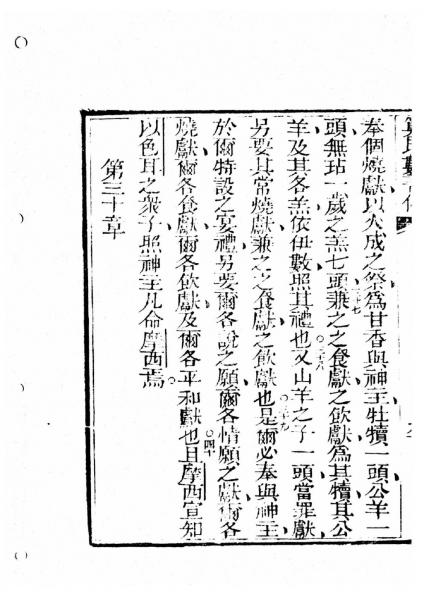 奉個燒獻以火成之祭為甘香與神主牡犢一頭公羊一
頭無玷一歲之羔七頭兼之之食獻之飲獻為其犢其公
羊及其各羔依伊數照其禮也又山羊之子一頭當罪獻
另要其常燒獻兼之之食獻之飲獻也是爾必奉與神主
於爾特設之宴禮另要爾各說之願爾各情願之獻爾各
燒獻爾各食獻爾各飲獻及爾各平和獻也且摩西宣知
以色耳之眾子照神主凡命摩西焉
第三十章